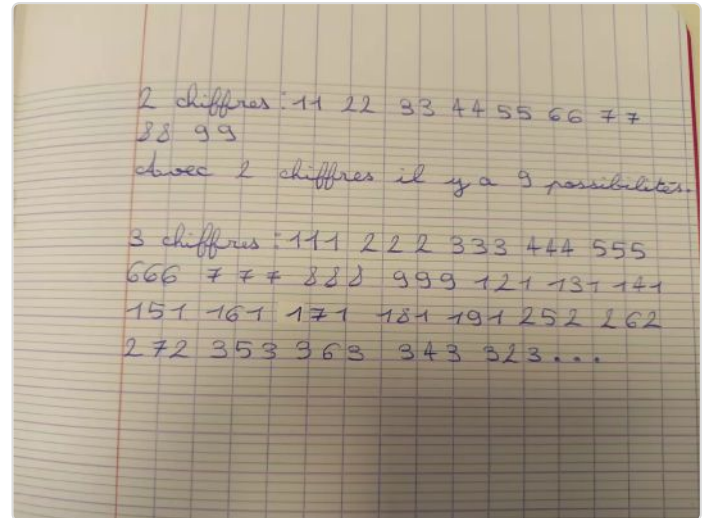 2 chiffres : 11 22 33 44 55 66 77
88 99
Avec 2 chiffres il y a 9 possibilités.
3 chiffres : 111 222 333 444 555
666 777 888 999 121 131 141
151 161 171 181 191 252 262
272 353 363 343 323...